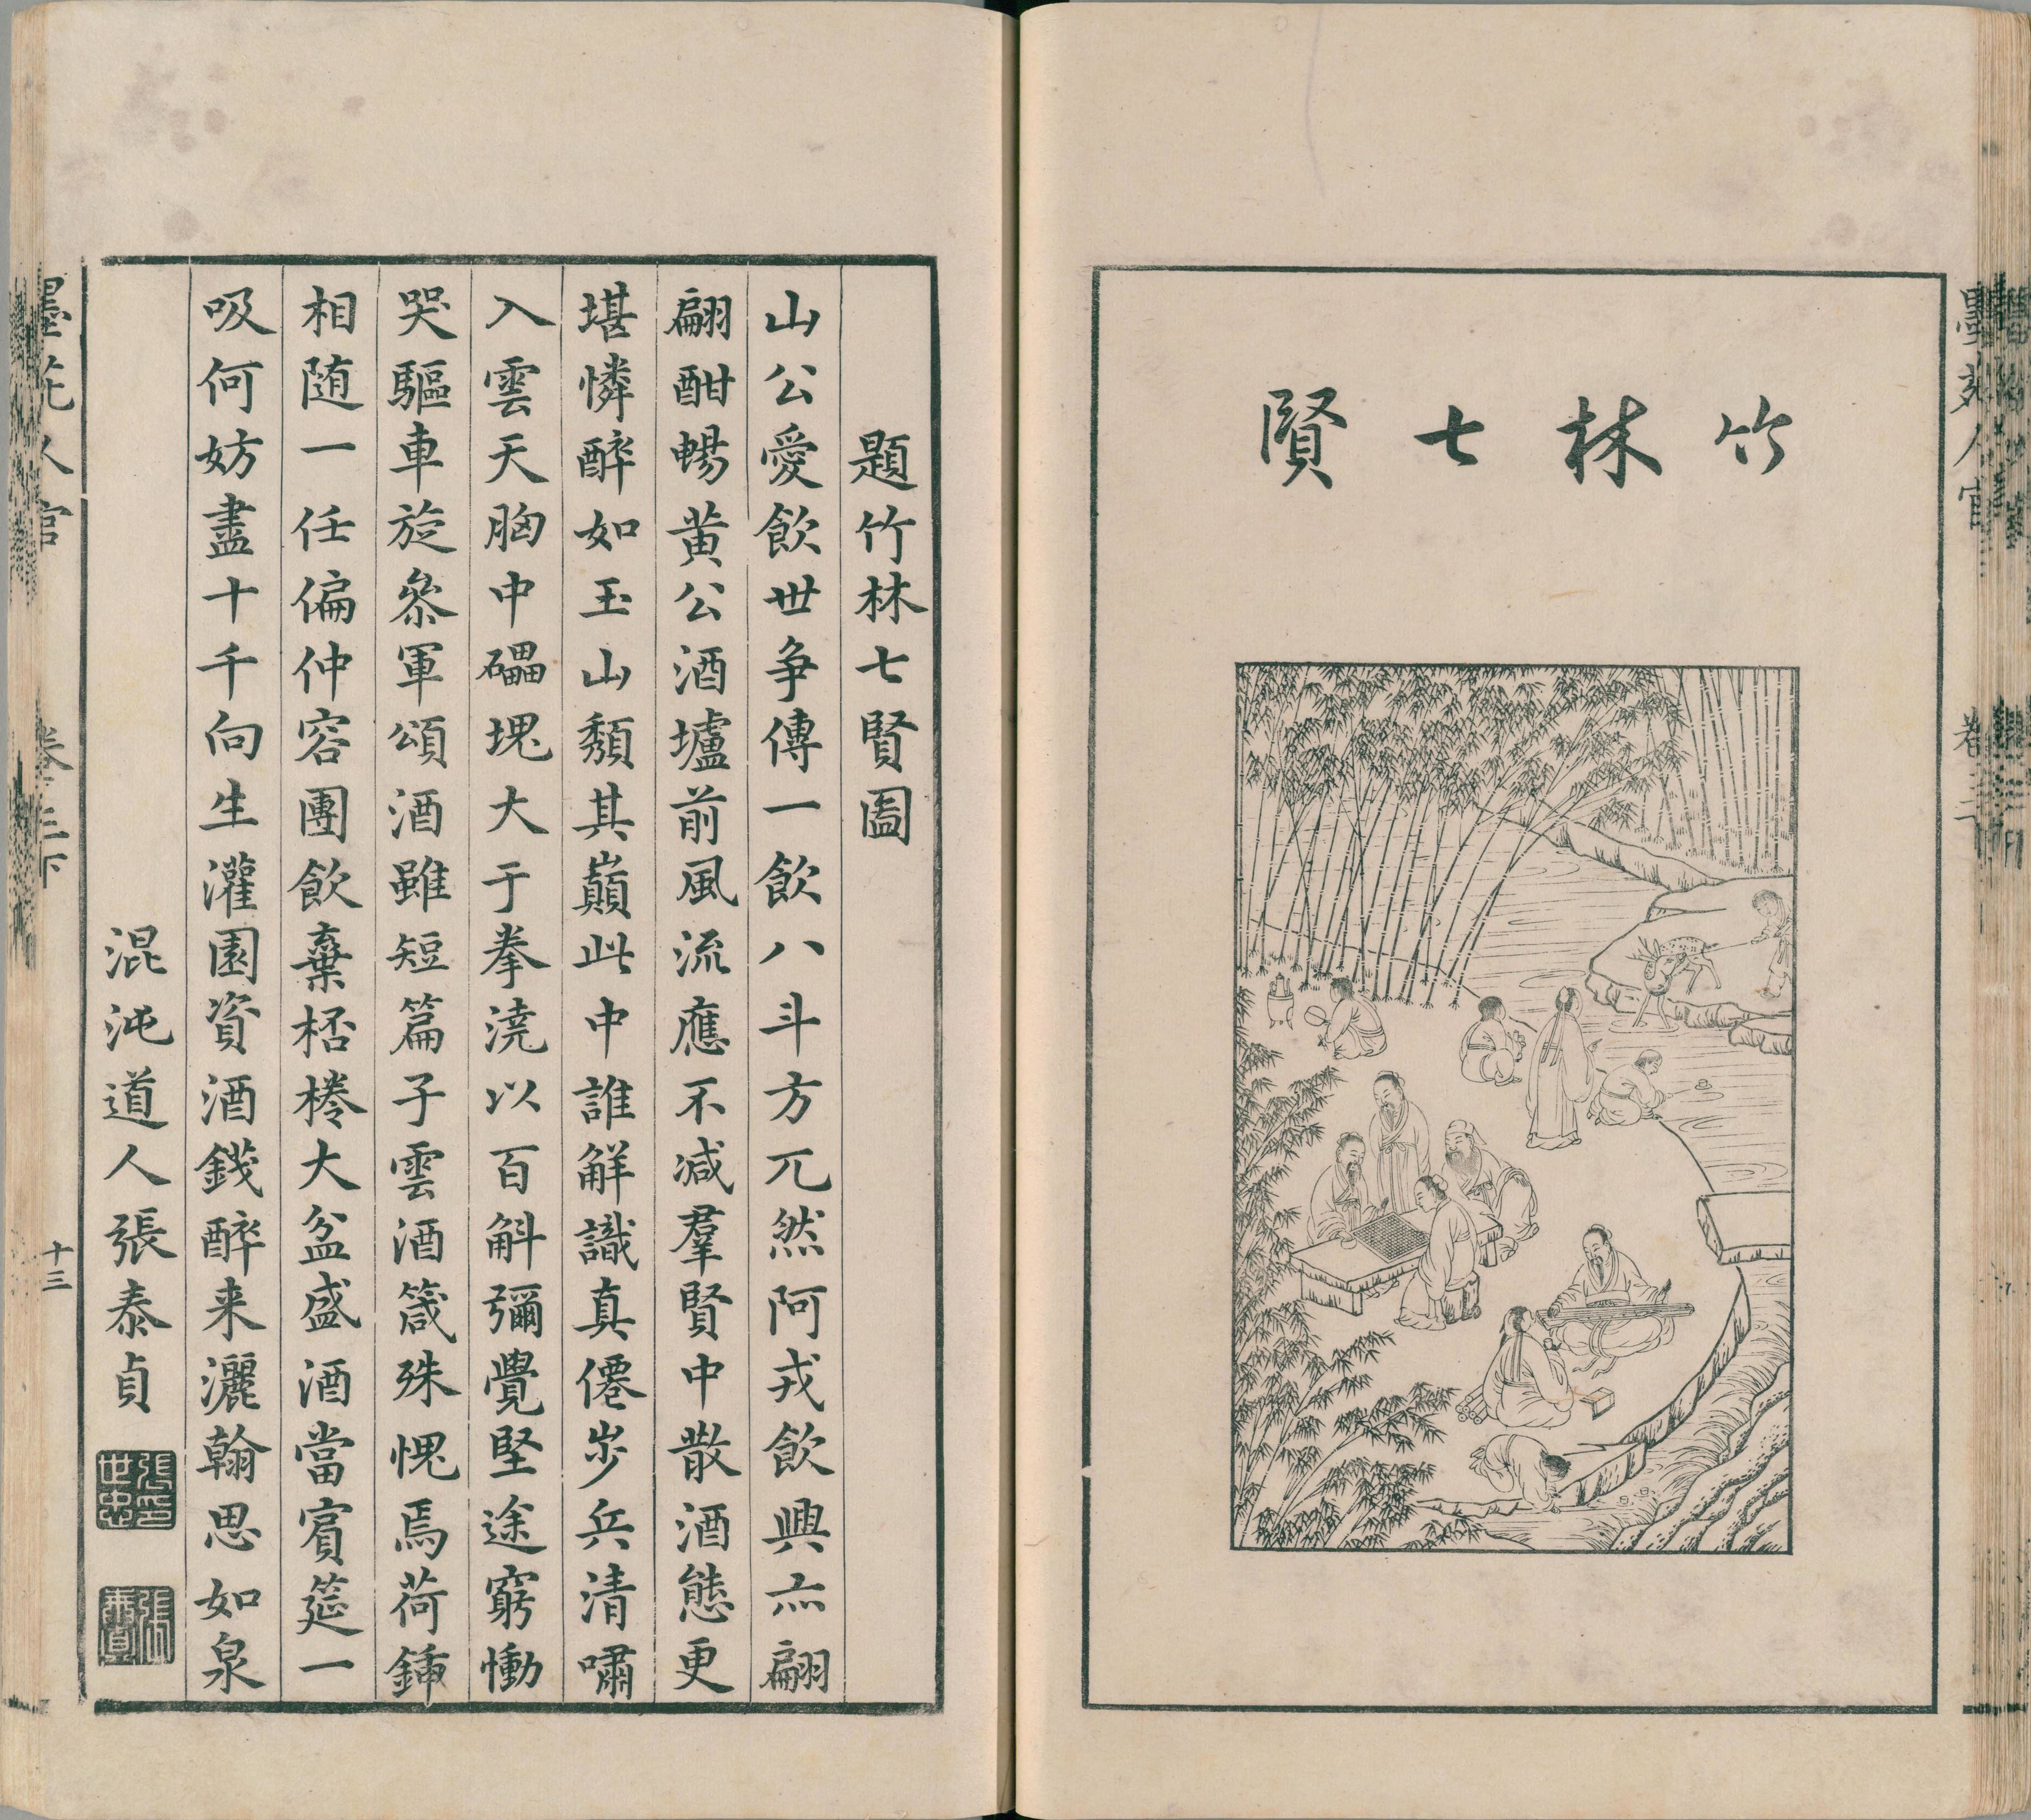 竹林七賢
題竹林七賢圖
山公愛飲世爭傳一飲八斗方兀然阿戎飲興亦翩
翩酣暢黄公酒壚前風流應不减羣賢中散酒態更
堪憐醉如玉山頽其巔此中誰解識真僊步兵清嘯
入雲天胸中礧塊大于拳澆以百斛彌覺堅途窮慟
哭驅車旋叅軍頌酒雖短篇子雲酒箴殊愧焉荷鍤
相随一任偏仲容團飲棄桮棬大盆盛酒當賔筵一
吸何妨盡十千向生灌園資酒錢醉来灑翰思如泉
混沌道人張泰貞
墨苑人官
卷三下
十三